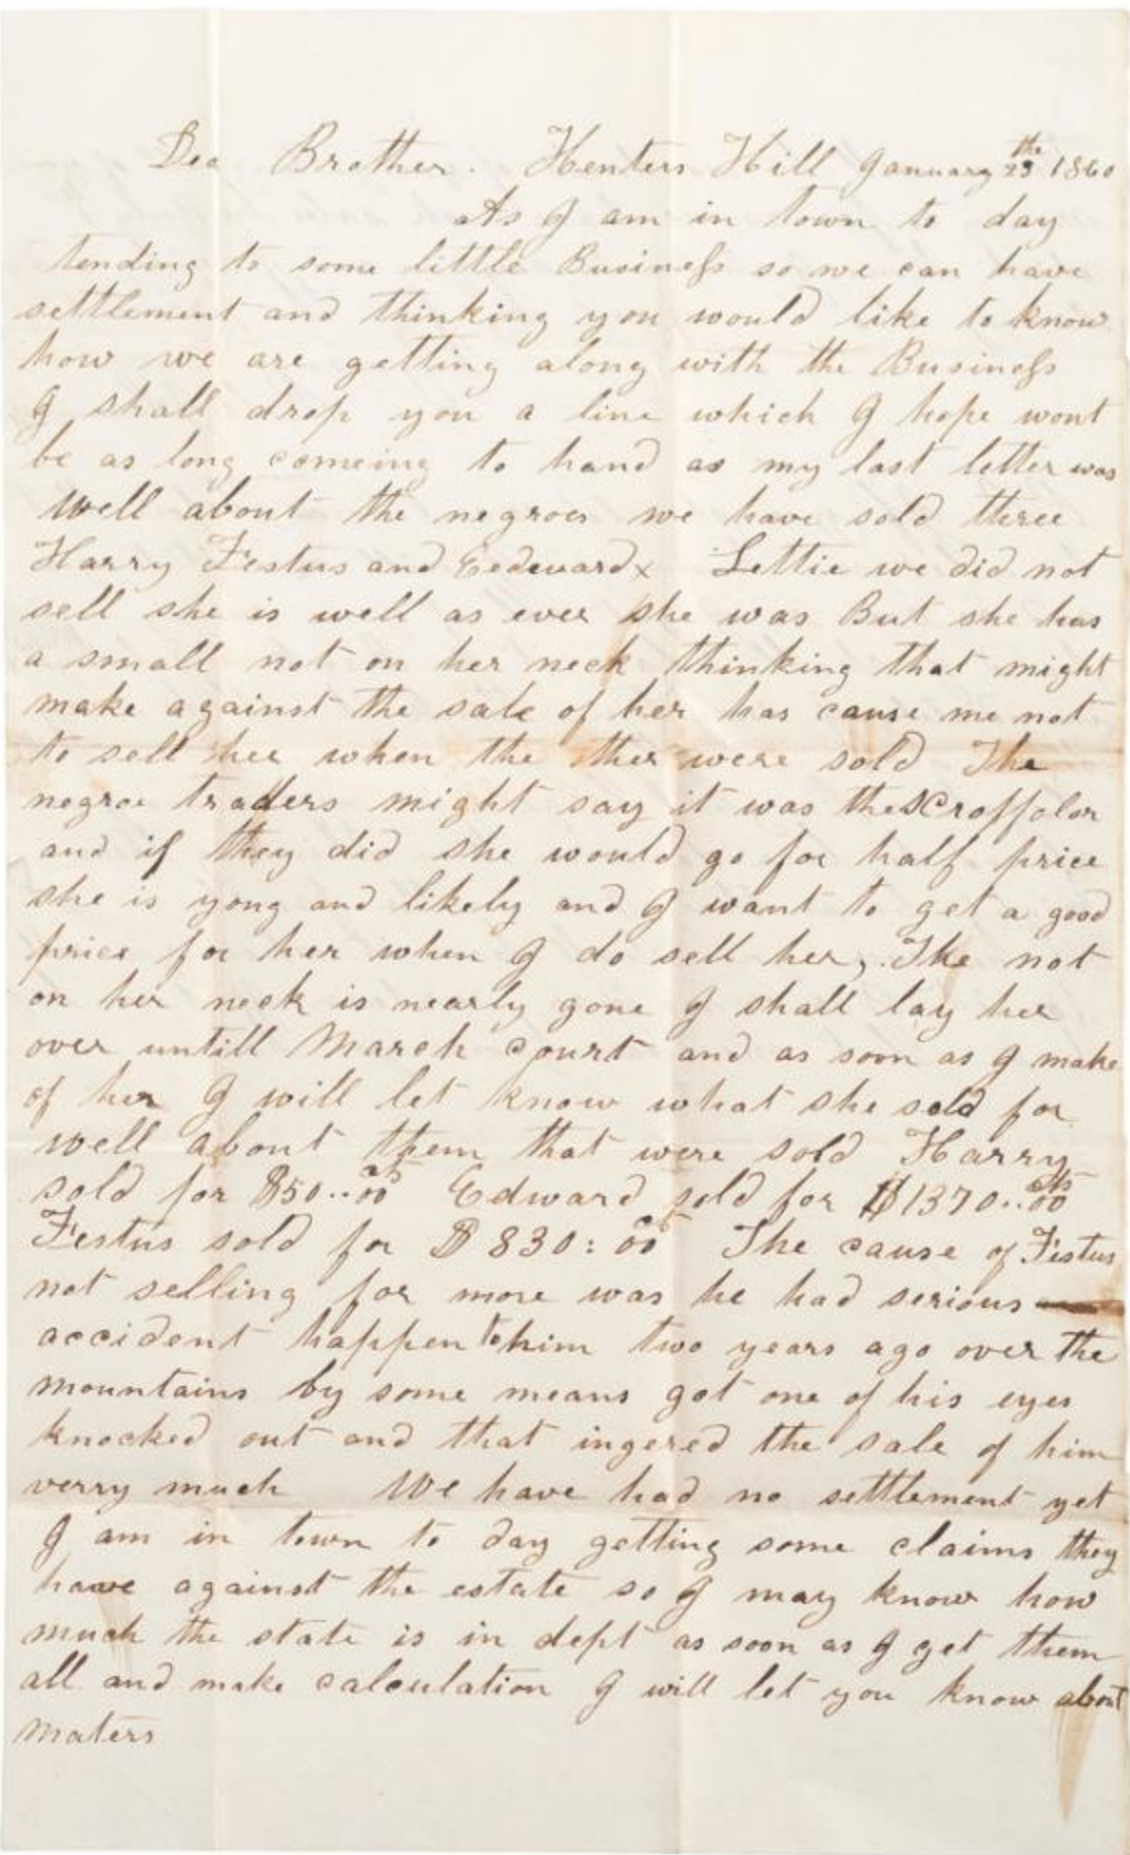 Dea Brother. Henters Hill January 23th 1860
As I am in town to day
tending to some little Business so we can have
settlement and thinking you would like to know
how we are getting along with the Business
I shall drop you a line which I hope wont
be as long comeing to hand as my last letter was
Well about the negroes we have sold three
Harry Festus and Eedward x Lettie we did not
sell she is well as ever she was But she has
a small not on her neck thinking that might
make against the sale of her has cause me not
to sell her when the ther were sold The
negroe traders might say it was the scroffolor
and if they did she would go for half price
she is yong and likely and I want to get a good
price for her when I do sell her, The not
on her neck is nearly gone I shall lay her
over untill March court and as soon as I make
of her I will let know what she sold for
well about them that were sold Harry
sold for $50..00cts Edward sold for $1370..00cts
Festus sold for $830:00cts The cause of Festus
not selling for more was he had serious
accident happen to him two years ago over the
mountains by some means got one of his eyes
knocked out and that ingered the sale of him
verry much We have had no settlement yet
I am in town to day getting some claims they
have against the estate so I may know how
much the state is in dept as soon as I get them
all and make calculation I will let you know about
maters